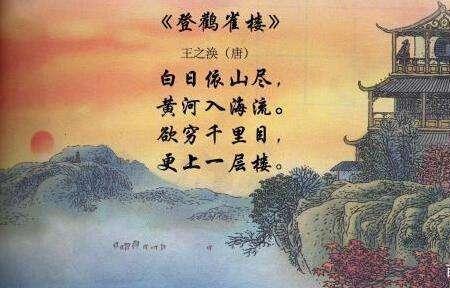 《登鹳雀楼》
王之涣（唐）
白日依山尽，
黄河入海流。
欲穷千里目，
更上一层楼。